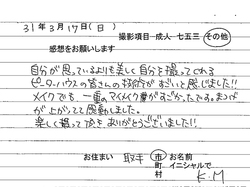 31年3月17日(日)
撮影項目-成人-七五三 その他
感想をお願いします
自分が思っているよりも美しく自分を撮ってくれる
ピーターハウスの皆さんの技術がすごいと感じました!!
メイクでも、一重のマイメイク量がすごかったです。まつげ
が上がってて感動しました。
楽しく撮って頂きありがとうございました!!
お住まい 取手 市 お名前
町 イニシャルで
村 K.M